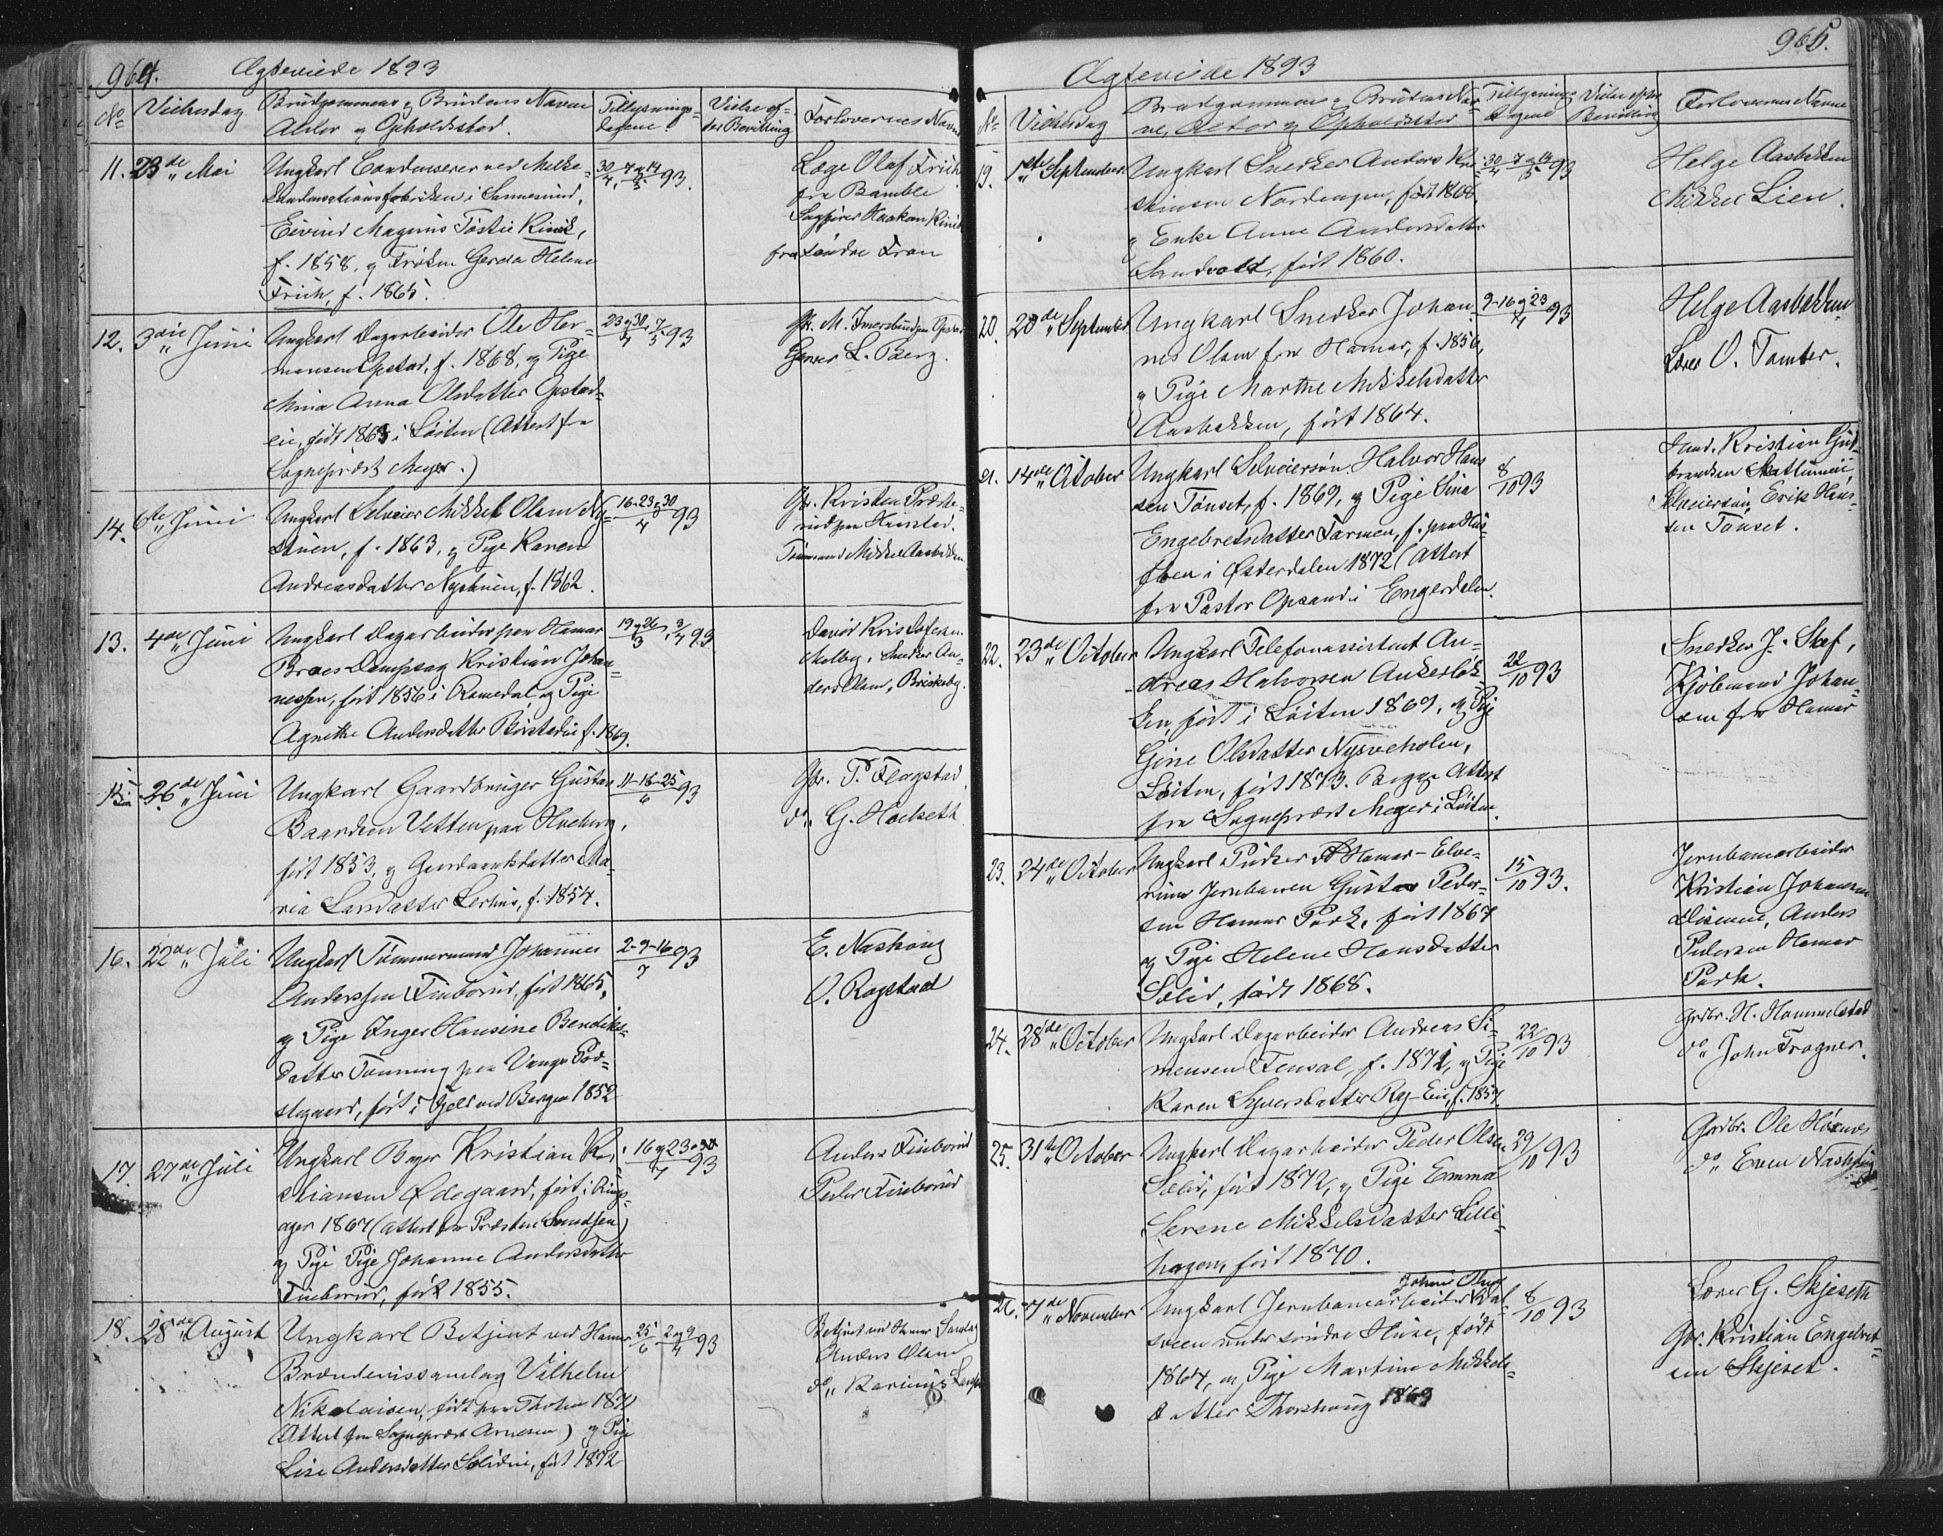 964.
Ægteviede 1893
No
Vielsesdag
Brudgommens og Brudens Navne
Alder og Opholdssted.
Tillysnings-
dagene.
Vielse ef-
ter Bevilling
Forlovernes Navne
11.
23de Mai
Ungkarl Condenserer ved Melke-
i Sannesund,
Eivind Magnus Tostie Rinck,
f. 1858, og Frøken Gerda Helene
Frich, f. 1865.
30/4, 7 og 14/5 93.
Læge Olaf Frich
fra Bamble
Sagfører Haakon Rinck
fra Søndre Fron
12.
3die Juni
Ungkarl Dagarbeider Ole Her-
mansen Opstad, f. 1868, og Pige
Mina Anna Olsdatter Opstad-
eie, født 1863 i Løiten (Attest fra
Sogneprest Meyer.)
23 og 30/4, 7/5 93
L. Berg.
14.
6te Juni
Ungkarl Selveier Mikkel Olsen Ny-
stuen, f. 1863, og Pige Karen
Andreasdatter Nystuen, f. 1862.
16-23-30/4 93
Gbr. Kristen Præste-
rud paa Hamstad.
Tømmermand Mikkel Aasbekken
13.
4de Juni
Ungkarl Dagarbeider paa Hamar
Bræs Dampsag Kristian Johan-
nessen, født 1856 i Romedal og Pige
Agnethe Andersdatter Børstadeie f. 1869.
19 og 26/3, 3/4 93
David Kristofersen
Molberg, Snedker An-
ders Olsen, Briskeby.
15
26de Juni
Ungkarl Gaardbruger Gustav
Baardsen Vetten paa Hoeberg,
født 1853, og Gaardmandsdatter Ma-
ria Larsdatter Lerhus, f. 1854.
11-18-25/6 93
Gbr. P. Flagstad
do. G. Hoelseth
16.
22de Juli
Ungkarl Tømmermand Johannes
Anderssen Finborud, født 1865,
og Pige Inger Hansine Bendiks-
datter Tonning paa Vangs Præ-
stegaard, født i Fjeld ved Bergen 1852
2-9-16/7 93
E. Nashoug
O. Rogstad
17.
27de Juli
Ungkarl Bager Kristian Kri-
stiansen Ødegaard, født i Rings-
ager 1867 (attest fra Præsten Smidsen)
og Pige Pige Johanne Andersdatter
Finborud, født 1855.
16 og 23 og 30/7 93
Anders Finborud
Peder Finborud
18.
28de August
Ungkarl Betjent ved Hamar
Brændevinssamlag Vilhelm
Nikolaisen, født paa Thoten 1870
(Attest fra Sogneprest Arnesen) og Pige
Lise Andersdatter Solideie, født 1872
25/6 2 og 9/7 93
Betjent ved Hamar Samlag
Anders Olsen
do. Karinius
965.
Ægteviede 1893
No
Vielsesdag
Brudgommens og Brudens Nav-
ne, Alder og Opholdssted
Tillysnings-
dagene
Vielse efter
Bevilling
Forlovernes Navne
19.
1ste September
Ungkarl Snedker Anders Kri-
stiansen Nordengen, født 1868
og Enke Anne Andersdatter
Sandvold, født 1860.
30/4 7 og 14/5 93
Helge Aasbekken
Mikkel Lien.
20.
20de September
Ungkarl Snedker Johan-
nes Olsen fra Hamar, f. 1856,
og Pige Marthe Mikkelsdatter
Aasbekken, født 1864.
9-16 og 23/4 93
Helge Aasbekken
Lærer O. Tomter.
21.
14de October
Ungkarl Selveiersøn Halvor Han-
sen Tønset, f. 1869, og Pige Sina
Engebretsdatter Tarmen, f. paa Hus-
floen i Østerdalen 1872 (Attest
fra Pastor Opsand i Engerdalen.
8/10 93
Huusmd. Kristian Gud-
brandsen Skattumeie
Selveiersøn Erik Han-
sen Tønset.
22.
23de October
Ungkarl Telefonassistent An-
dreas Halvorsen Ankerløk-
ken, født i Løiten 1869, og Pige
Gine Olsdatter Nysveholen,
Løiten, født 1873. Begge Attest
fra Sogneprest Meyer i Løiten.
22/10 93
Snedker J. Skef,
Kjøbmand Johan-
sen fra Hamar
23.
24de October
Ungkarl Pudser ved Hamar-Elve-
rums Jernbanen Gustav Peder-
sen Hamar Park, født 1867
og Pige Helene Hansdatter
Solid, født 1868.
15/10 93.
Jernbanearbeider
Kristian Johansen
Disenie, Anders
Pedersen Hamar
Park.
24.
28de October
Ungkarl Dagarbeider Andreas Si-
mensen Finsal, f. 1871, og Pige
Karen Syversdatter Røj-Eie, f. 1857.
22/10 93
Grdbr. H. Hommelstad
do. John Frogner.
25.
31te October
Ungkarl Dagarbeider Peder Olsen
Solid, født 1872, og Pige Emma
Serene Mikkelsdatter Lilli-
hagen, født 1870.
29/10 93
Grdbr. Ole Høsnes
do. Even Nashoug
26.
7de November
Johan Olsen
Ungkarl Jernbanearbeider Dal-
sveen under søndre Huse, født
1864, og Pige Martine Mikkels-
datter Thorshaug 1863
8/10 93
Lærer G. Skjeseth
Gbr. Kristian Engebret-
sen Skjeset.